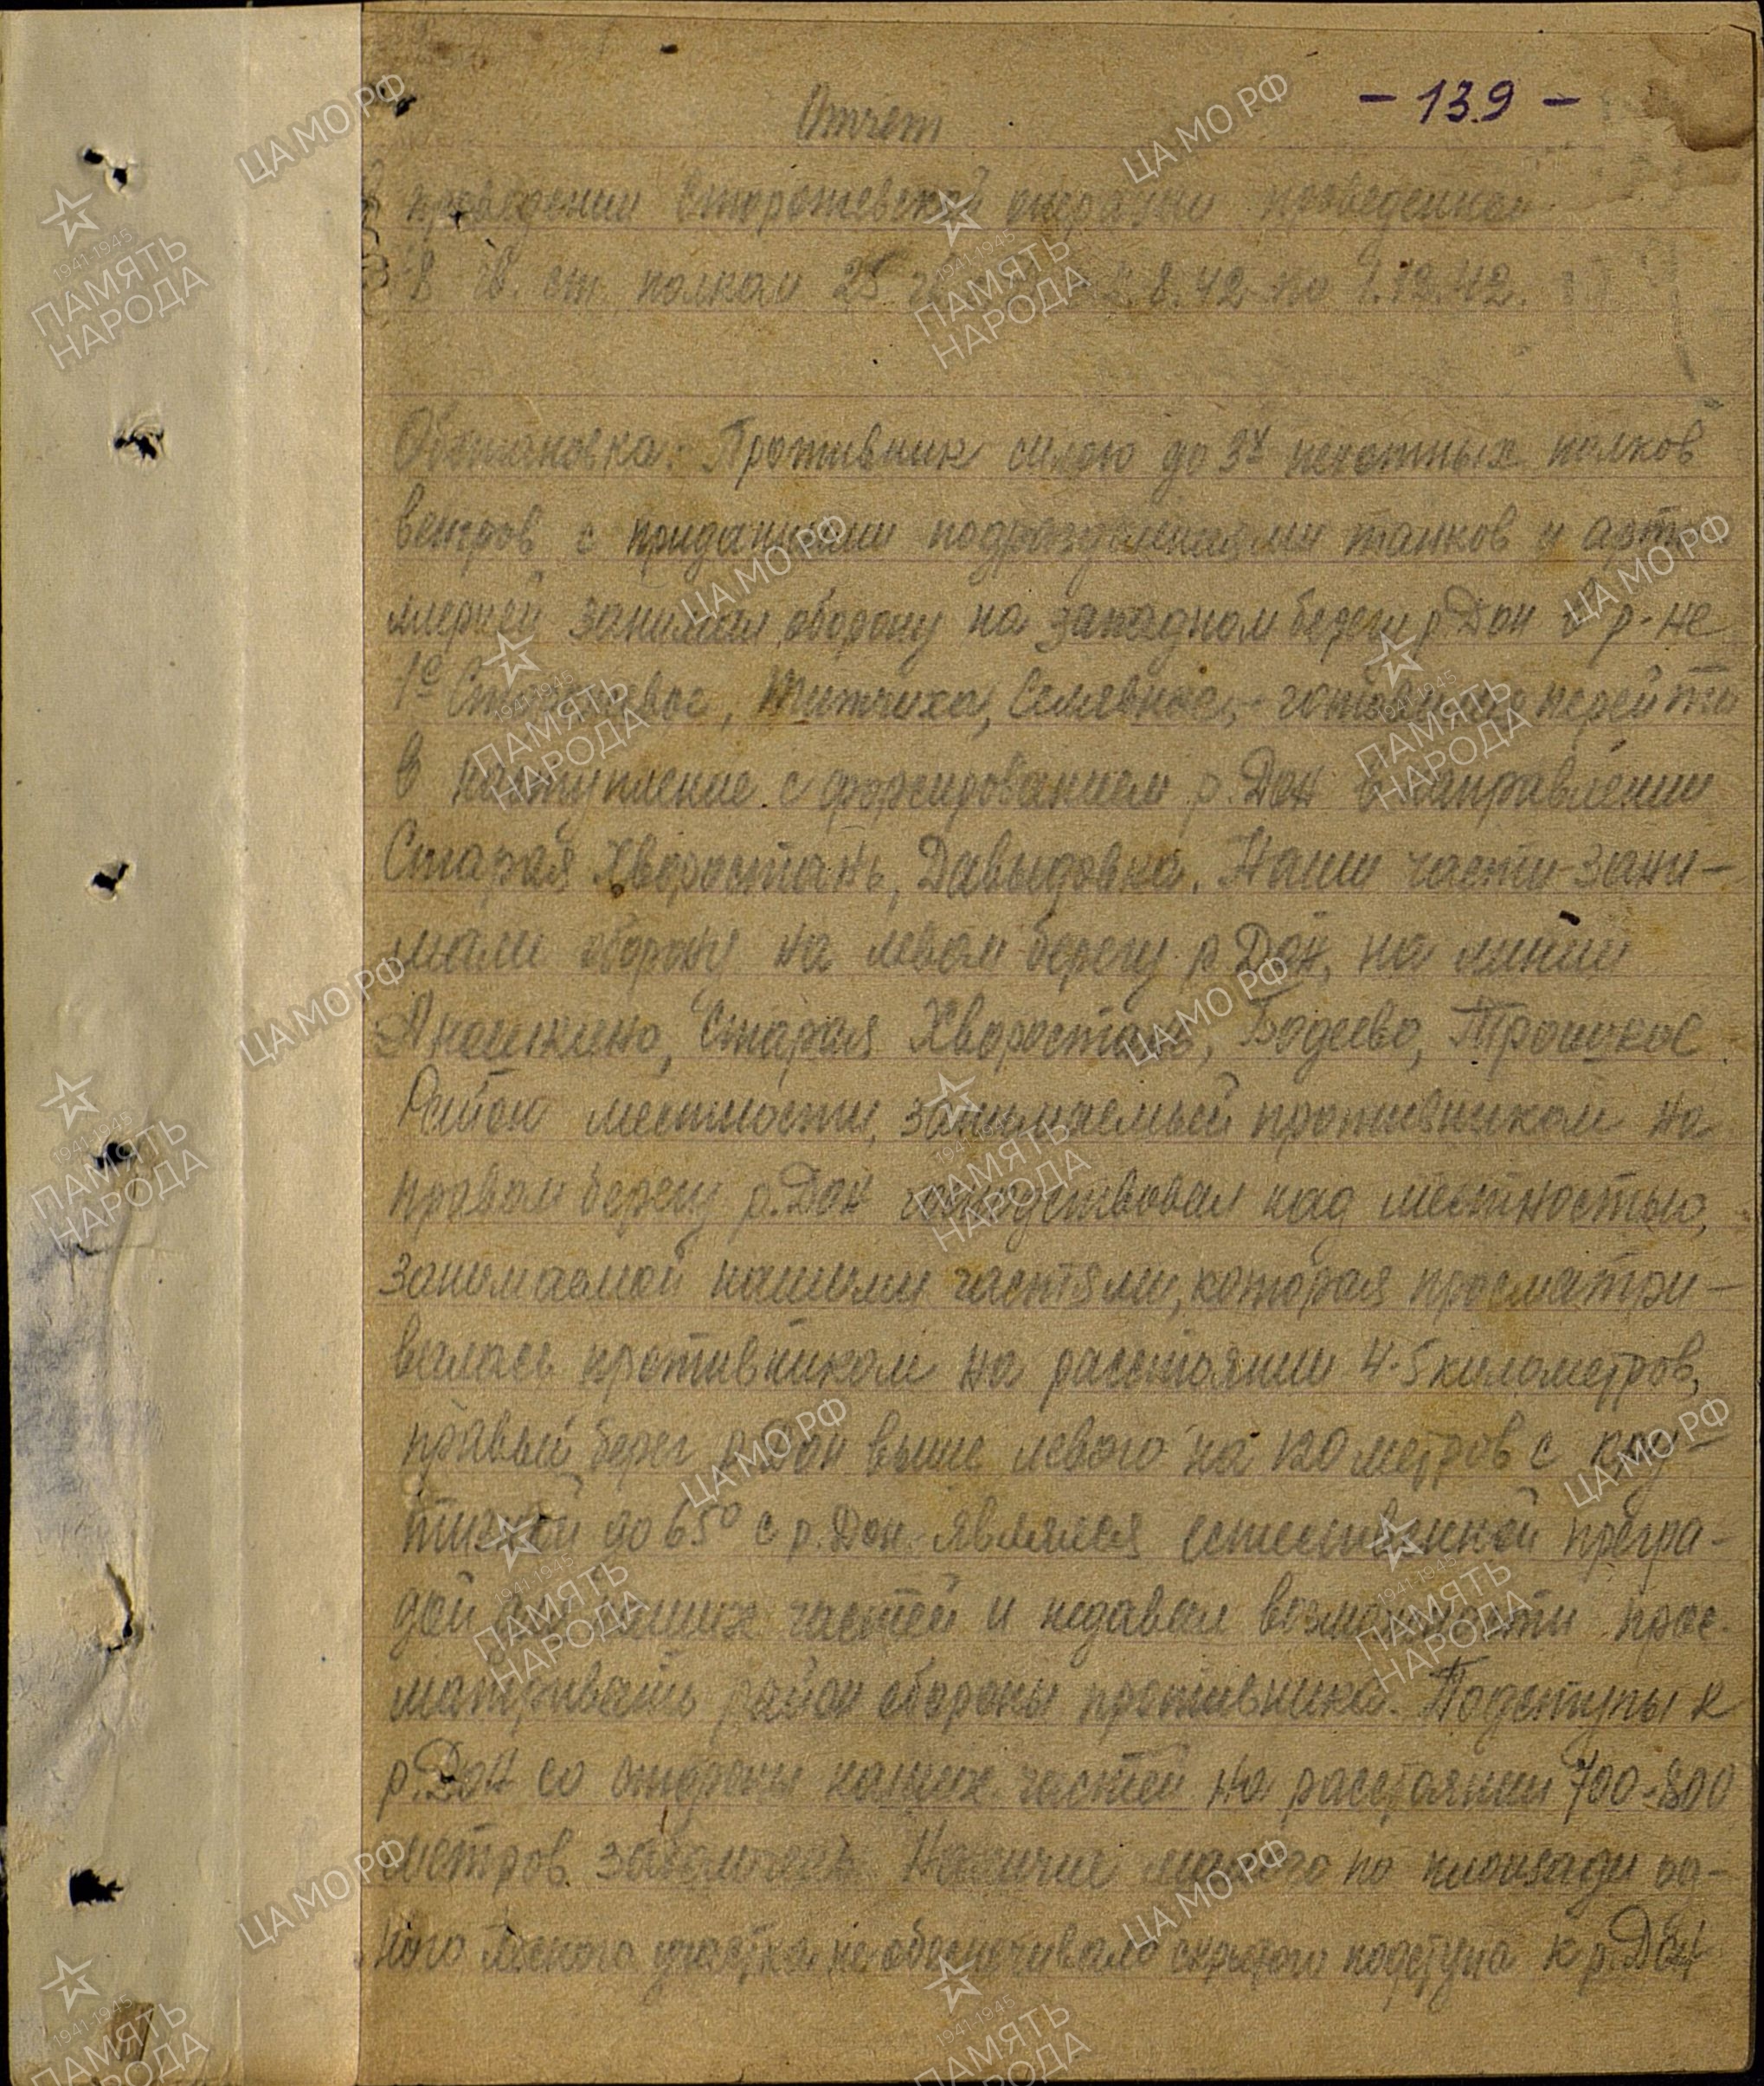 - 139 -
Отчет
проведении Сторожевской операции проведенной
гв. стр. полком 25 8.42 по 1.12.42.
Обстановка: Противник силою до 3х пехотных полков
венгров с приданными подразделениями танков и арти
ллерией занимал оборону на западном берегу р. Дон в р-не
1е Сторожевое, Титчиха, Селявное, готовился перейти
в наступление с форсированием р. Дон в направлении
Старая Хворостань, Давыдовка. Наши части зани-
мали оборону на левом берегу р. Дон, на линии
Аношкино, Старая Хворостань, Бодеево, Троицкое
Район местности, занимаемый противником на
правом берегу р. Дон господствовал над местностью,
занимаемой нашими частями, которая просматри-
валась противником на расстоянии 4-5 километров,
правый берег р. Дон выше левого на 120 метров с кру-
тизной до 65° с р. Дон являлся естественной прегра-
дой для наших частей и недавал возможности прос-
матривать район обороны противника. Подступы к
р. Дон со стороны наших частей на расстоянии 700-800
метров Наличие малого по площади од-
ного лесного участка не обеспечивало скрытого подступа к р. Дон